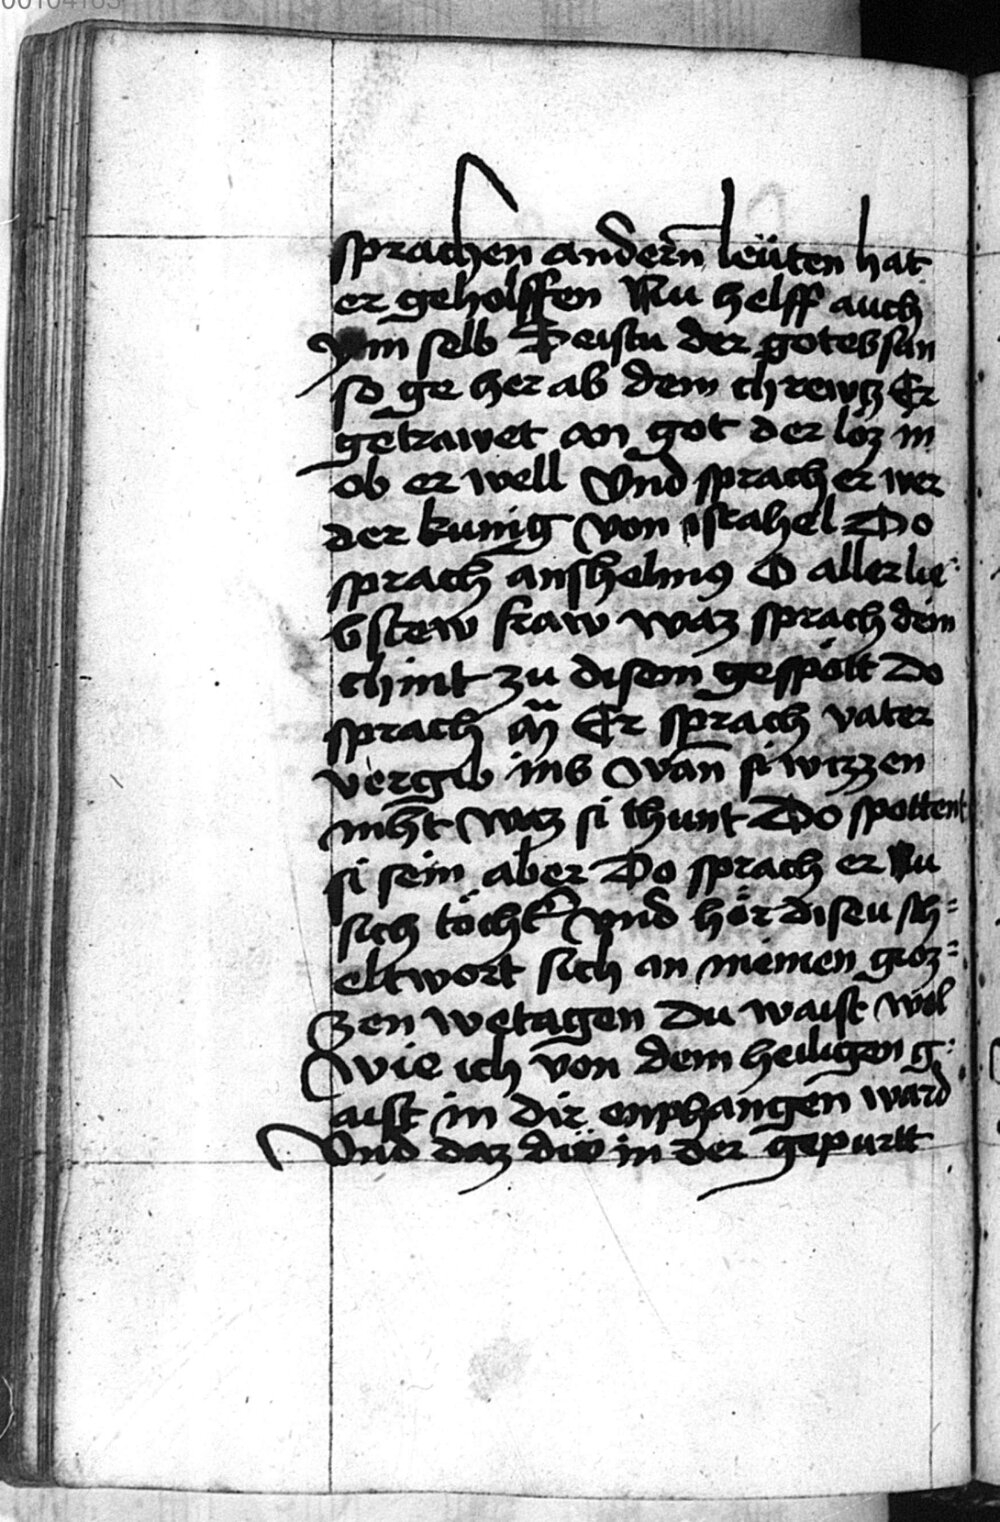 00104165
sprachen andern̄ leüten hat
er geholffen Nu helff auch
ym selb Peistu der gotes sun
so ge her ab dem chrewtz Er
getrawet an got der löz in
ob er well Vnd sprach er wer
der kunig von israhel Do
sprach anshelmꝰ O aller lie-
bstew fraw waz sprach dein
chint zu disem gespött Do
sprach m̄ Er sprach vater
vergib ins Wan̄ si wizzen
nicht waz si thunt Do spottent
si sein aber Do sprach er Nu
sich töcht̄ vnd hör diseu sch=
eltwort sich an meinen groz=
zen wetagen Du waist wol
wie ich von dem heiligen g:
aist in dir enphangen ward
Vnd daz diw in der gepurtt